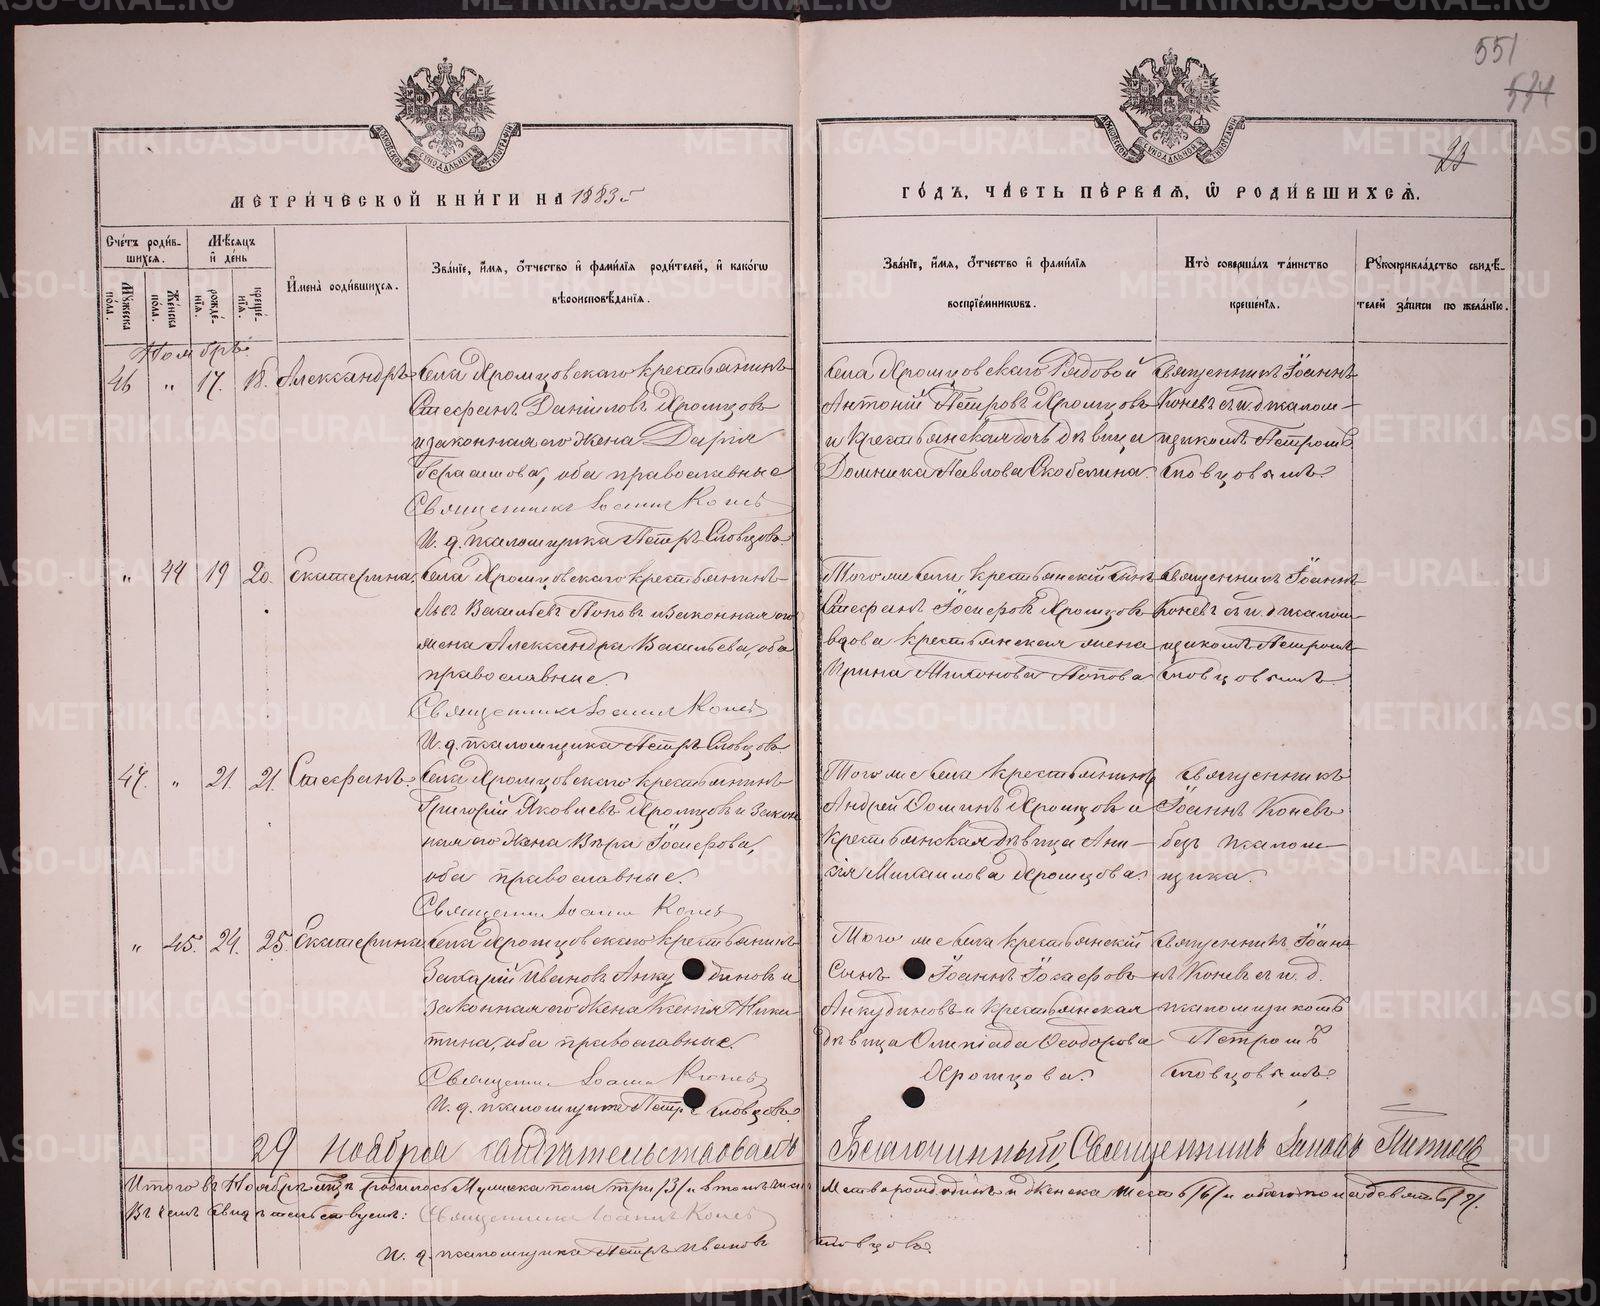 551
574
23
МЕТРИ́ЧЕСКОЙ КНИ́ГИ НА 1885
ГО́ДЪ, ЧА́СТЬ ПЕ́РВАЯ, Ѡ РОДИ́ВШИХСЯ.
Сче́тъ роди́вшихся.
Мѣ́сяцъ и҆ де́нь
И҆мена̀ роди́вшихся.
Зва́нїе, и҆́мя, ѻ҆́тчество и҆ фами́лїя роди́телей, и҆ како́гѡ вѣроисповѣ́данїя.
Зва́нїе, и҆́мя, ѻ҆́тчество и҆ фами́лїя воспрїе́мникѡвъ.
Кто̀ соверша́лъ та́инство креще́нїя.
Рꙋкоприкла́дство свидѣ́телей за́писи по жела́нїю.
Мꙋ́жеска по́ла.
Же́нска по́ла.
рожде́нїя.
креще́нїя.
Ноябрь.
46 " 17. 18. Александръ
Села Хромцовскаго крестьянинъ
Стефанъ Данiиловъ Хромцовъ
и законная его жена Дарiя
Герасимова, оба православные
Священникъ Iоаннъ Коневъ
И. д. псаломщика Петръ Словцовъ
Села Хромцовскаго Рядовой
Антонiй Петровъ Хромцовъ
и крестьянская дочь девица
Домника Павлова Скобелина.
Священникъ Iоаннъ
Коневъ съ и. д. псалом-
щикомъ Петромъ
Словцовымъ.
" 44 19 20. Екатерина.
Села Хромцовскаго крестьянинъ
Левъ Васильевъ Поповъ и законная его
жена Александра Васильева, оба
православные.
Священникъ Iоаннъ Коневъ
И. д. псаломщика Петръ Словцовъ
Того же села крестьянскiй сынъ
Стефанъ Iосифовъ Хромцовъ
вдова крестьянская жена
Ирина Попова
Священникъ Iоаннъ
Коневъ съ и. д. псалом-
щикомъ Петромъ
Словцовымъ.
47. " 21. 21. Стефанъ.
Села Хромцовскаго крестьянинъ
Григорiй Яковлевъ Хромцовъ и закон
ная его жена Вѣра Iосифова,
оба православные.
Священникъ Iоаннъ Коневъ
Того же села крестьянинъ
Андрей Хромцовъ и
крестьянская дѣвица Ани-
сiя Михаилова Хромцова.
Священникъ
Iоаннъ Коневъ
безъ псалом-
щика.
" 45. 24. 25. Екатерина
Села Хромцовскаго крестьянинъ
Захарiй Ивановъ Анкудиновъ и
законная его жена Ксенiя Ники-
тина, оба православные.
Священникъ Iоаннъ Коневъ
И. д. псаломщика Петръ Словцовъ
Того же села крестьянскiй
сынъ Iоаннъ Iосифовъ
Анкудиновъ и крестьянская
дѣвица Олимпiада Ѳеодорова
Хромцова.
Священникъ Iоан-
нъ Коневъ съ и. д.
псаломщикомъ
Петромъ
Словцовымъ.
29 ноября свидѣтельствовалъ Благочинный, Священникъ
Итого въ Ноябрѣ родилось мужеска пола три /3/ и въ томъ числѣ мертворожденъ одинъ и женска шесть /6/ и обоего пола девять /9/.
Въ чемъ свидѣтельствуемъ: Священникъ Iоаннъ Коневъ
И. д. псаломщика Петръ Ивановъ Словцовъ.